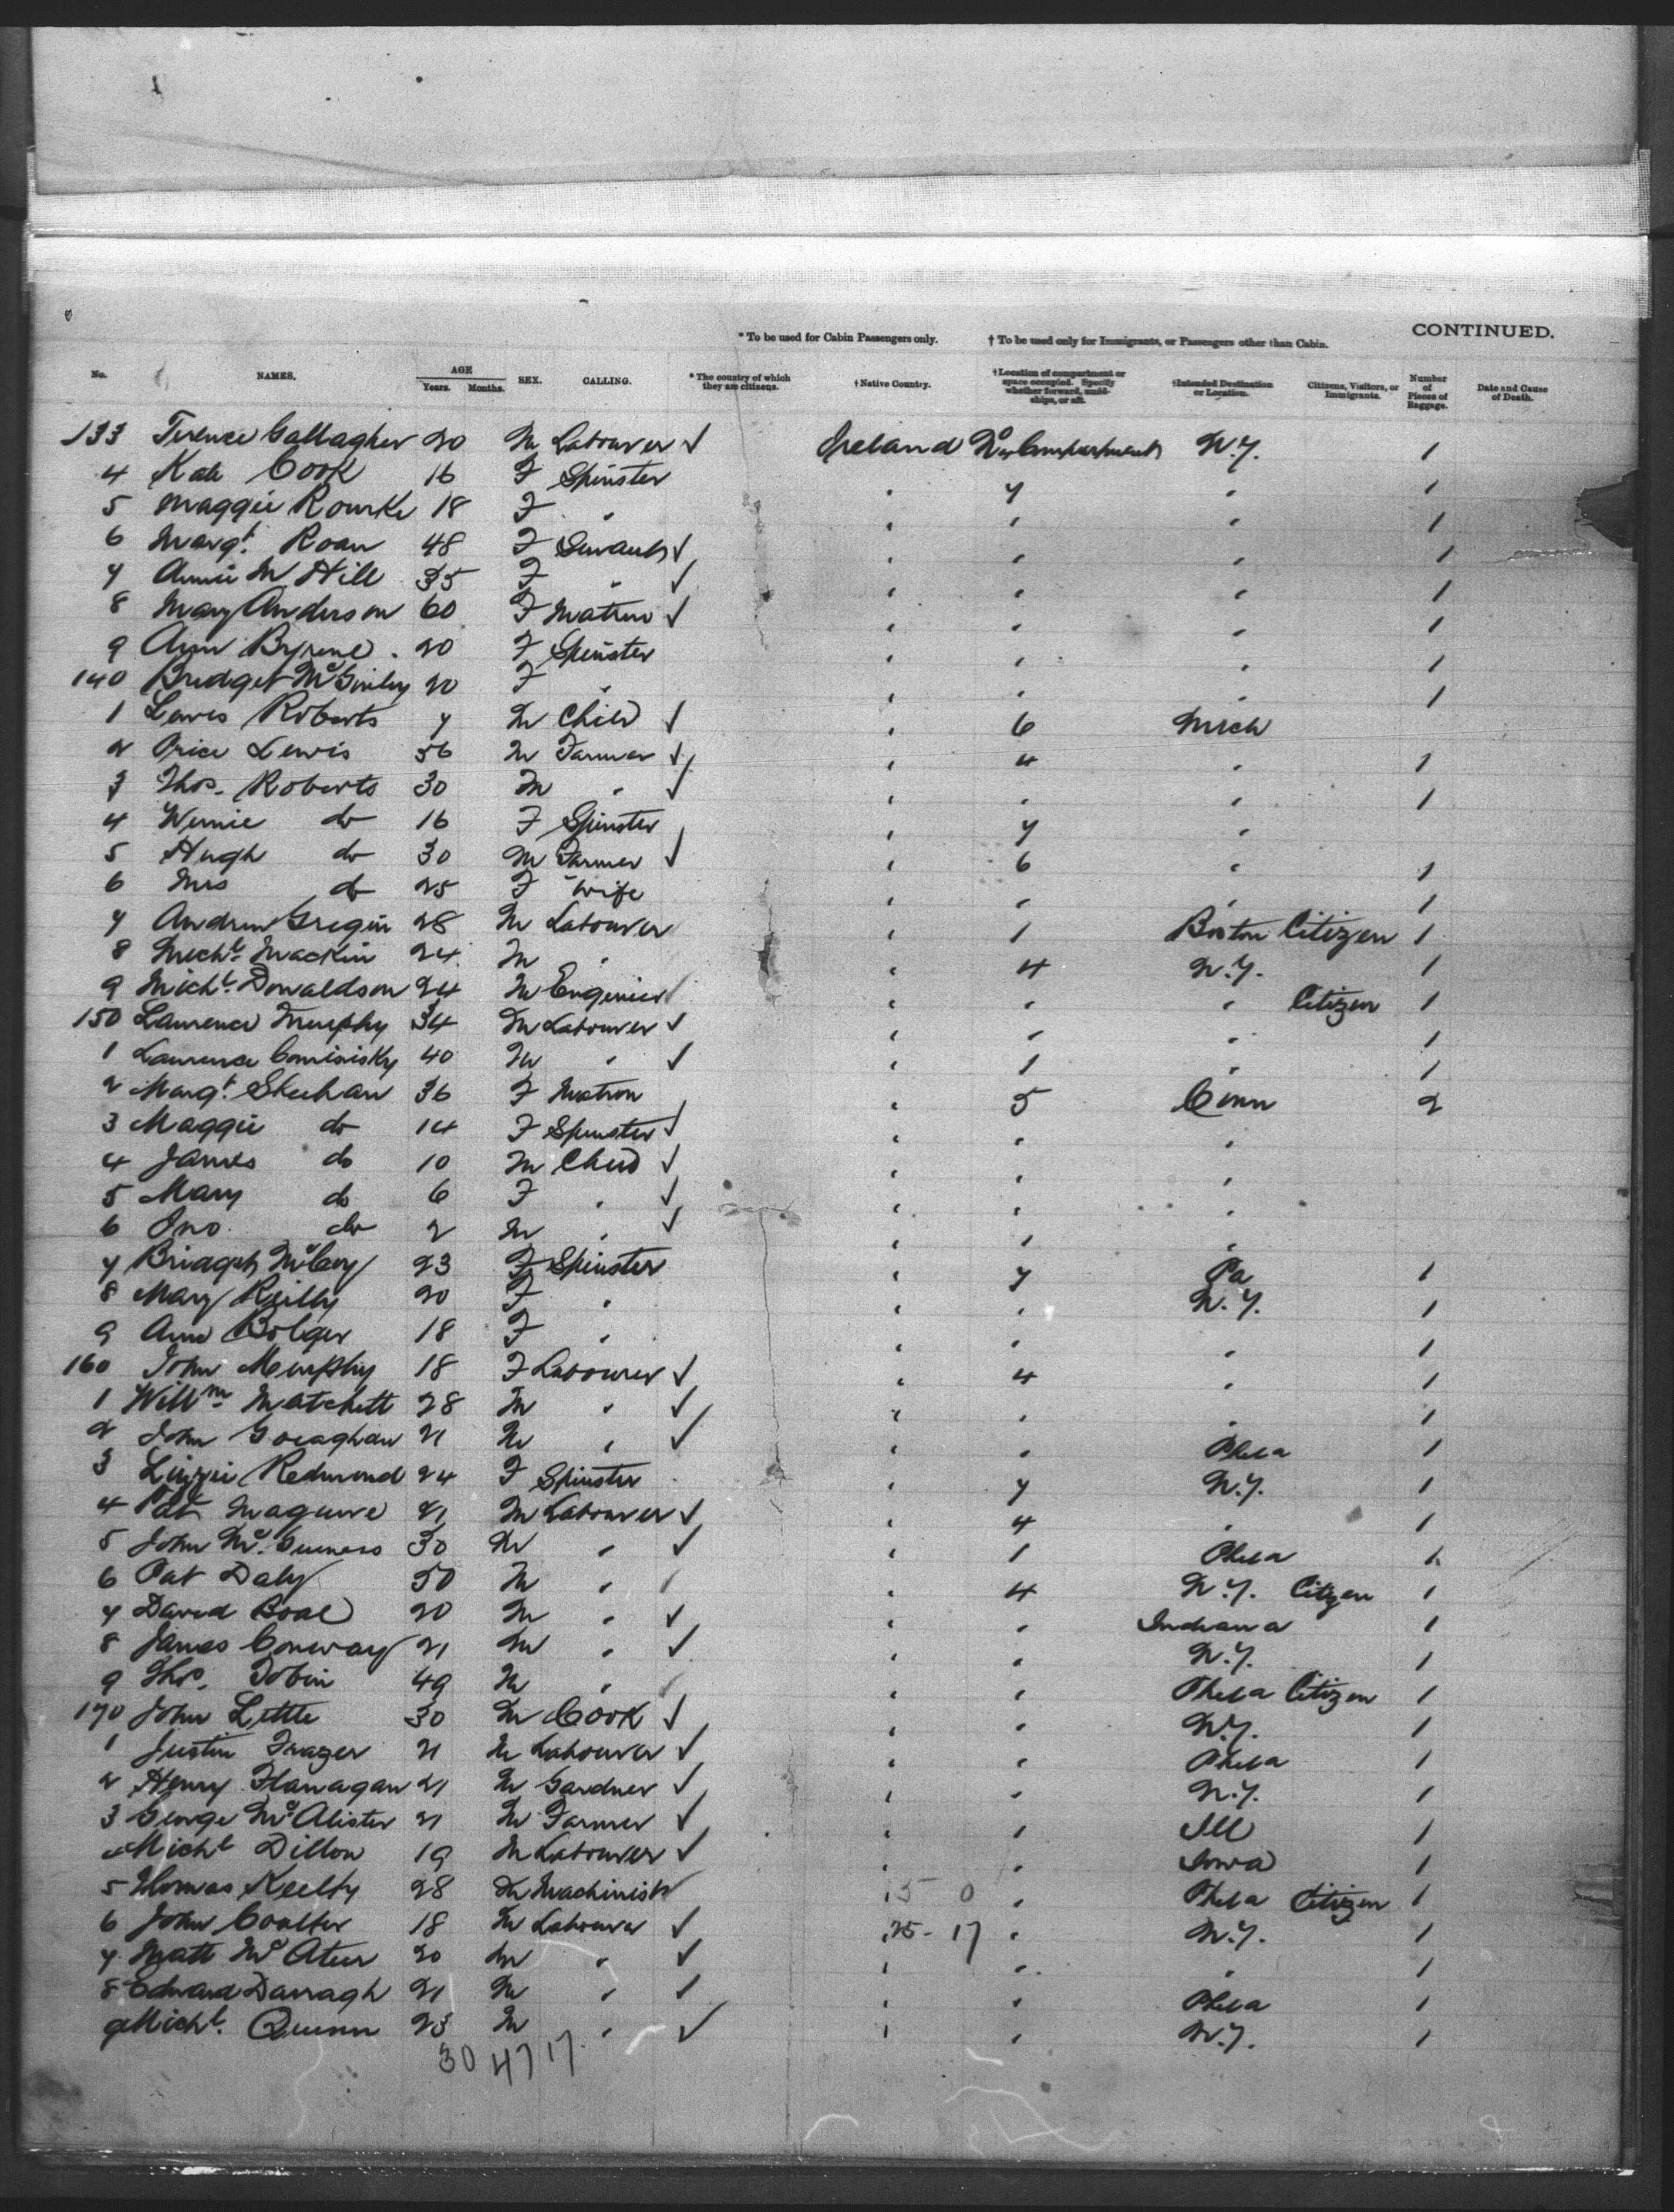 CONTINUED.
* To be used for Cabin Passengers only. † To be used only for Immigrants, or Passengers other than Cabin.
No. NAMES. AGE Years. Months. SEX. CALLING. * The country of which they are citizens. † Native Country. † Location of compartment or space occupied. Specify whether forward, amidships, or aft. † Intended Destination or Location. Citizens, Visitors, or Immigrants. Number of Pieces of Baggage. Date and Cause of Death.
133 Terence Gallagher 20 M Labourer ✓ Ireland N.Y. 1
4 Kate Cook 16 F Spinster " 7 " 1
5 Maggie Rourke 18 F " " " " 1
6 Margt. Roan 48 F Servant ✓ " " " 1
7 Annie M Hill 35 F " ✓ " " " 1
8 Mary Anderson 60 F Matron ✓ " " " 1
9 Ann Byrne 20 F Spinster " " " 1
140 Bridget McGinley 20 F " " " " 1
1 Lewis Roberts 7 M Child ✓ " 6 Mich
2 Price Lewis 56 M Farmer ✓ " 4 " 1
3 Thos. Roberts 30 M " ✓ " " " 1
4 Winnie do 16 F Spinster " 7 "
5 Hugh do 30 M Farmer ✓ " 6 " 1
6 Mrs do 25 F Wife " " " 1
7 Andrew 28 M Labourer " 1 Boston Citizen 1
8 Michl. Mackin 24 M " " 4 N.Y. 1
9 Michl. Donaldson 24 M Engineer " " " Citizen 1
150 Laurence Murphy 34 M Labourer ✓ " " " 1
1 Laurence Comisisky 40 M " ✓ " 1 " 1
2 Margt. Sheehan 36 F Matron " 5 Conn 2
3 Maggie do 14 F Spinster ✓ " " "
4 James do 10 M Child ✓ " " "
5 Mary do 6 F " ✓ " " "
6 Jno. do 2 M " ✓ " " "
7 Bridget 23 F Spinster " 7 Pa 1
8 Mary Reilly 20 F " " " N.Y. 1
9 Ann Bolger 18 F " " " " 1
160 John Murphy 18 F Labourer ✓ " 4 " 1
1 Willm. Matchett 28 M " ✓ " " " 1
2 John Goraghan 21 M " ✓ " " Phila 1
3 Lizzie Redmond 24 F Spinster " 7 N.Y. 1
4 Pat Maguire 21 M Labourer ✓ " 4 " 1
5 John McGuiness 30 M " ✓ " 1 Phila 1
6 Pat Daly 50 M " " 4 N.Y. Citizen 1
7 David Boal 20 M " ✓ " " Indiana 1
8 James Conway 21 M " ✓ " " N.Y. 1
9 Thos. Tobin 49 M " " " Phila Citizen 1
170 John Little 30 M Cook ✓ " " N.Y. 1
1 Justin Frazer 21 M Labourer ✓ " " Phila 1
2 Henry Flanagan 21 M Gardner ✓ " " N.Y. 1
3 George McAlister 21 M Farmer ✓ " 1 Ill 1
4 Michl Dillon 19 M Labourer ✓ " " Iowa 1
5 Thomas Keelty 28 M Machinist " 5 0 " Phila Citizen 1
6 John Coulter 18 M Labourer ✓ " 25-17 " N.Y. 1
7 Matt McAteer 20 M " ✓ " " " 1
8 Edward Darragh 21 M " ✓ " " Phila 1
9 Michl. Quinn 23 M " ✓ " " N.Y. 1
30 47 17